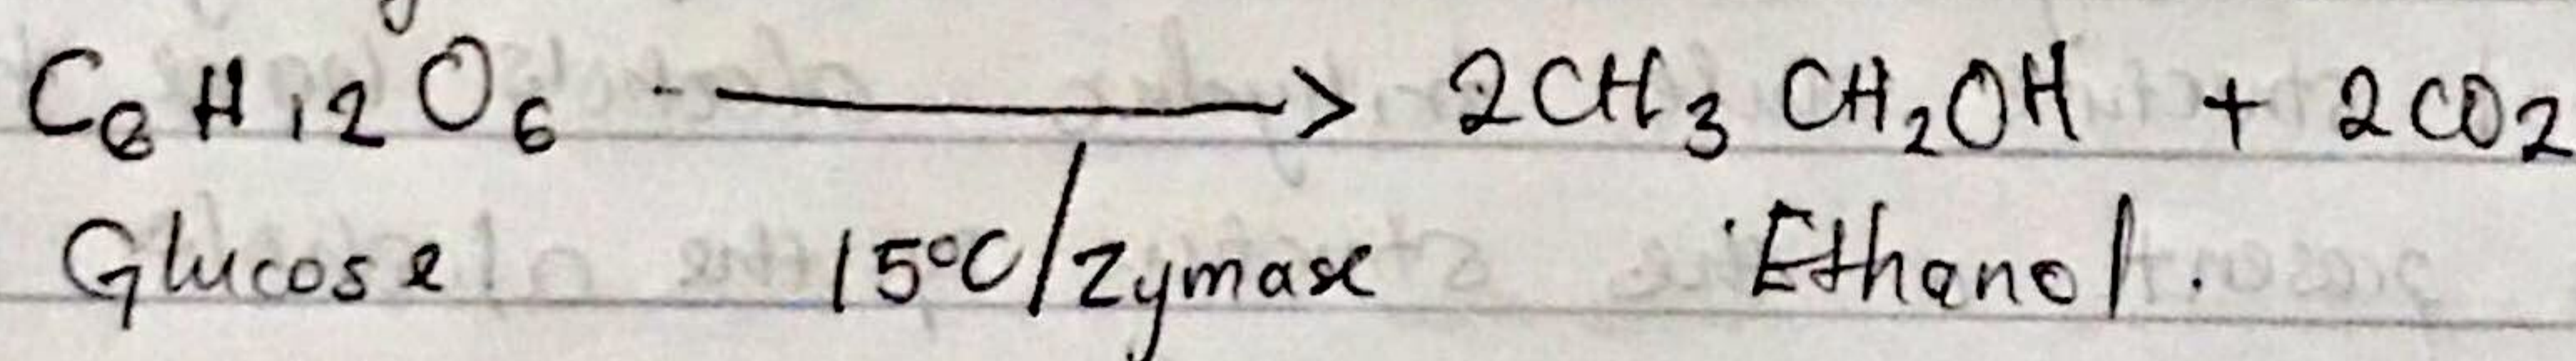 C₆H₁₂O₆ ⟶ 2CH₃CH₂OH + 2CO₂
Glucose 15°C/Zymase Ethanol.